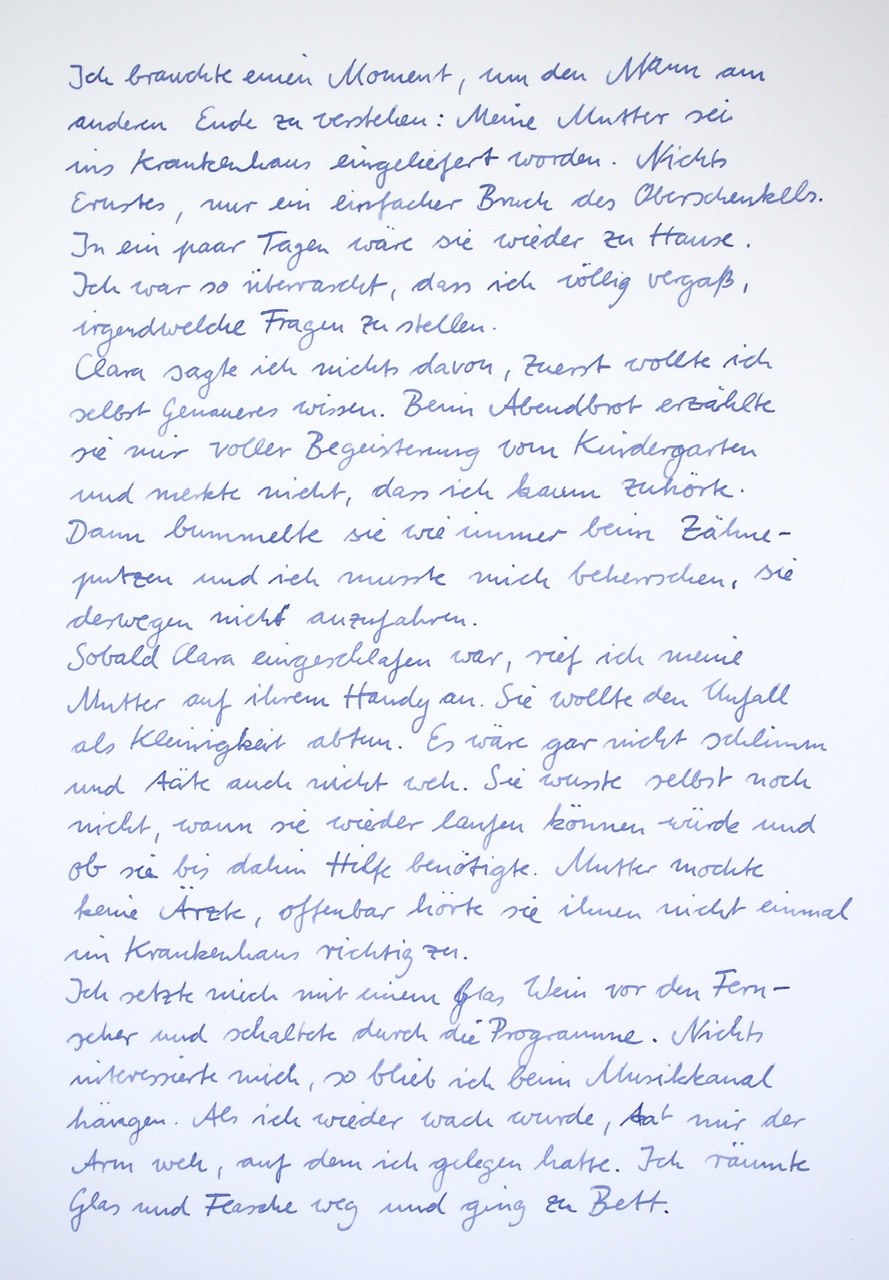 Ich brauchte einen Moment, um den Mann am
anderen Ende zu verstehen: Meine Mutter sei
ins Krankenhaus eingeliefert worden. Nichts
Ernstes, nur ein einfacher Bruch des Oberschenkels.
In ein paar Tagen wäre sie wieder zu Hause.
Ich war so überrascht, dass ich völlig vergaß,
irgendwelche Fragen zu stellen.
Clara sagte ich nichts davon, zuerst wollte ich
selbst Genaueres wissen. Beim Abendbrot erzählte
sie mir voller Begeisterung vom Kindergarten
und merkte nicht, dass ich kaum zuhörte.
Dann bummelte sie wie immer beim Zähne-
putzen und ich musste mich beherrschen, sie
deswegen nicht anzufahren.
Sobald Clara eingeschlafen war, rief ich meine
Mutter auf ihrem Handy an. Sie wollte den Unfall
als Kleinigkeit abtun. Es wäre gar nicht schlimm
und täte auch nicht weh. Sie wusste selbst noch
nicht, wann sie wieder laufen können würde und
ob sie bis dahin Hilfe benötigte. Mutter mochte
keine Ärzte, offenbar hörte sie ihnen nicht einmal
im Krankenhaus richtig zu.
Ich setzte mich mit einem Glas Wein vor den Fern-
seher und schaltete durch die Programme. Nichts
interessierte mich, so blieb ich beim Musikkanal
hängen. Als ich wieder wach wurde, tat mir der
Arm weh, auf dem ich gelegen hatte. Ich räumte
Glas und Flasche weg und ging zu Bett.